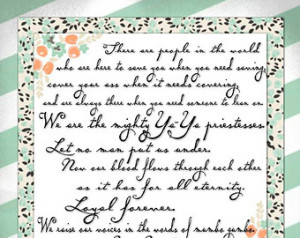 "There are people in the world
who are here to save you when you need saving,
cover your ass when it needs covering,
and are always there when you need someone to lean on.
We are the mighty Ya-Ya priestesses.
Let no man put us under.
Now our blood flows through each other
as it has for all eternity.
Loyal forever.
We raise our voices in the words of mumbo gumbo.